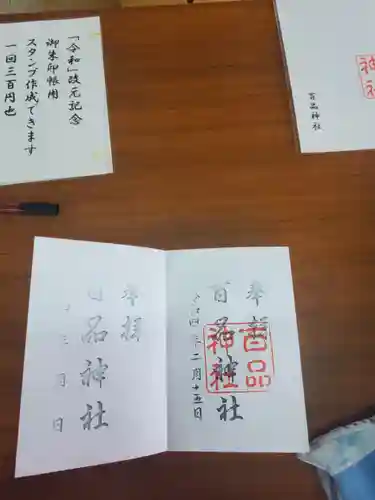 「令和」改元記念
御朱印帳用
スタンプ作成できます
一回三百円也
神社
百品神社
奉拝
百品神社
月 日
奉拝
百品神社
四年二月十五日
百品神社